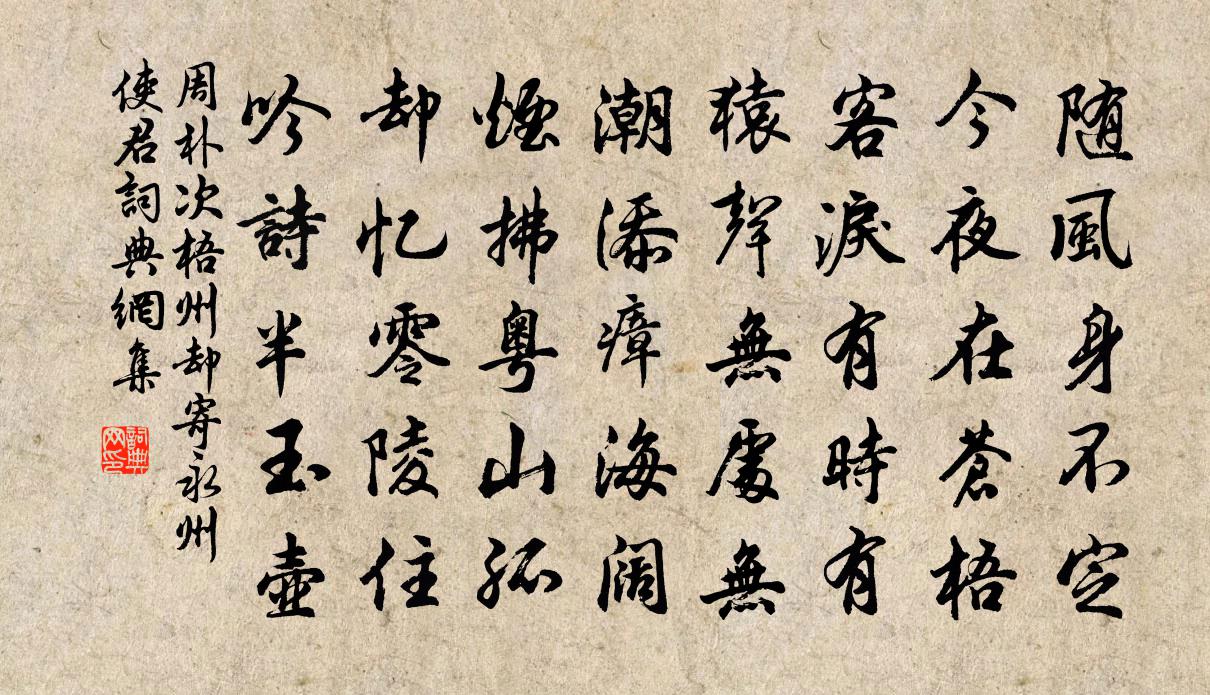 随風身不定
今夜在蒼梧
客淚有時有
猿聲無處無
潮添瘴海闊
煙拂粵山孤
却忆零陵住
吟詩半玉壺
周朴次梧州却寄永州
使君詞典網集
詞典网印